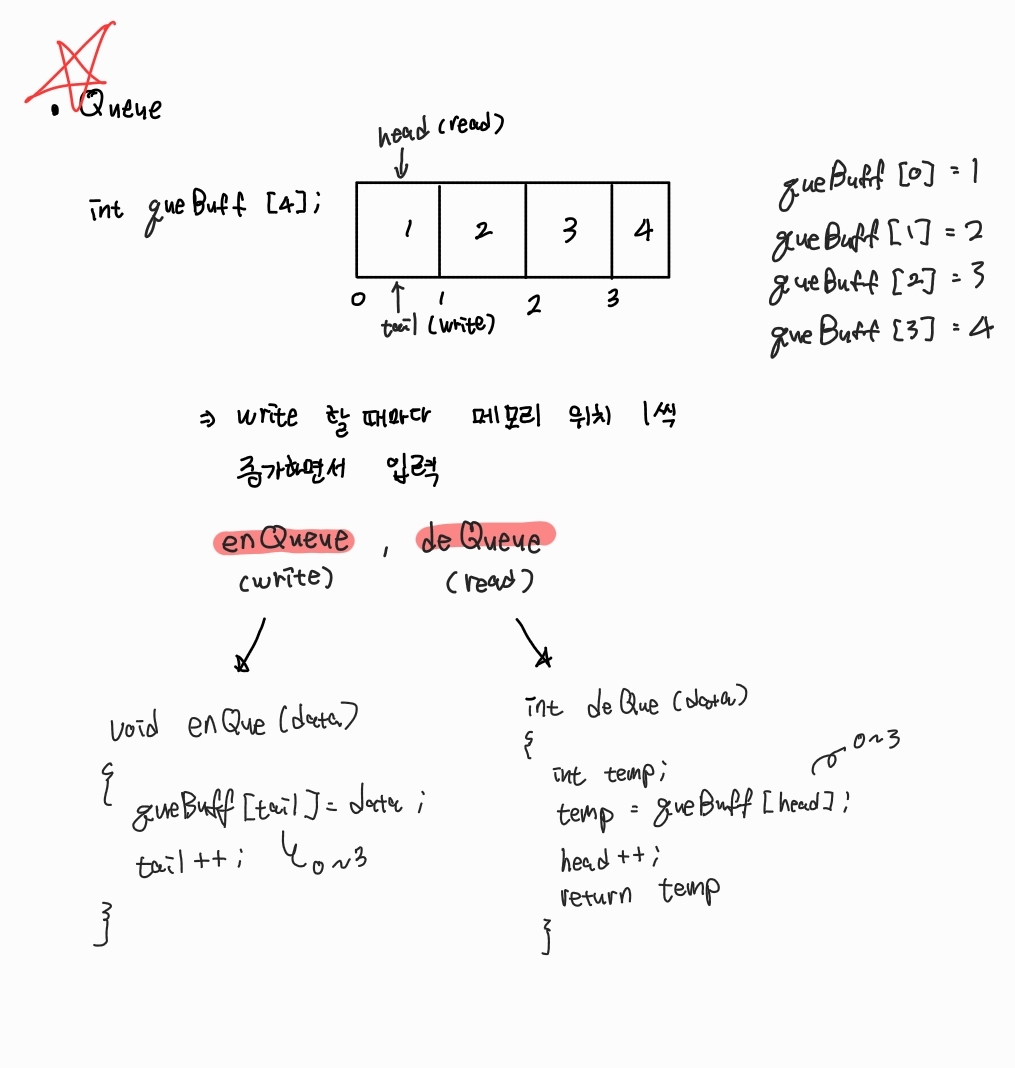 • Queue
head (read)
int queBuff [4];
1 2 3 4
0 1 2 3
tail (write)
queBuff [0] = 1
queBuff [1] = 2
queBuff [2] = 3
queBuff [3] = 4
⇒ write 할 때마다 메모리 위치 1씩
증가하면서 입력
enQueue , deQueue
(write) (read)
void enQue (data)
{
queBuff [tail] = data ;
tail ++ ; 0 ~ 3
}
int deQue (data)
{
0 ~ 3
int temp;
temp = queBuff [head] ;
head ++ ;
return temp
}